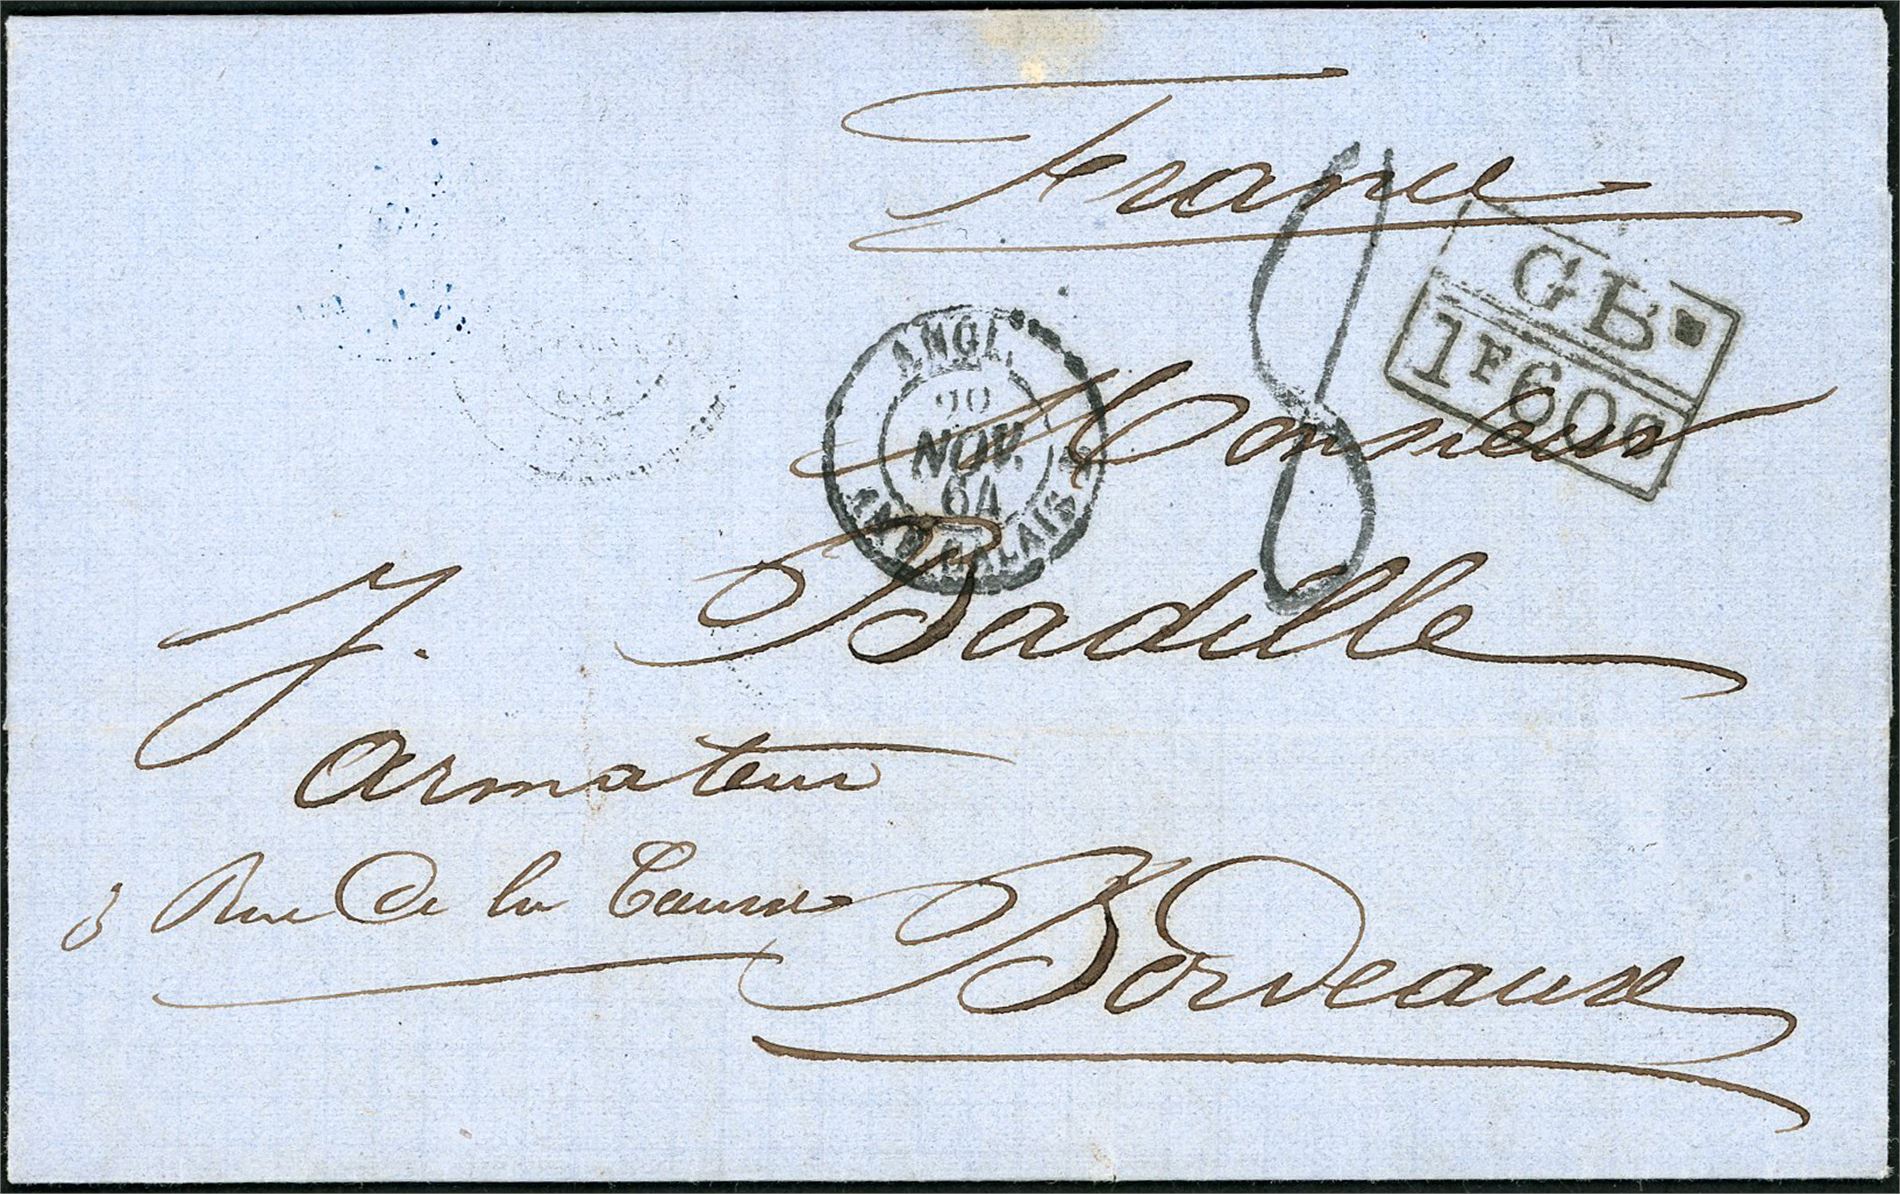 France
GB
1F60c
8
ANGL.
NOV.
64
AMB. CALAIS
Monsieur
J. Badille
armateur
Rue de la
Bordeaux